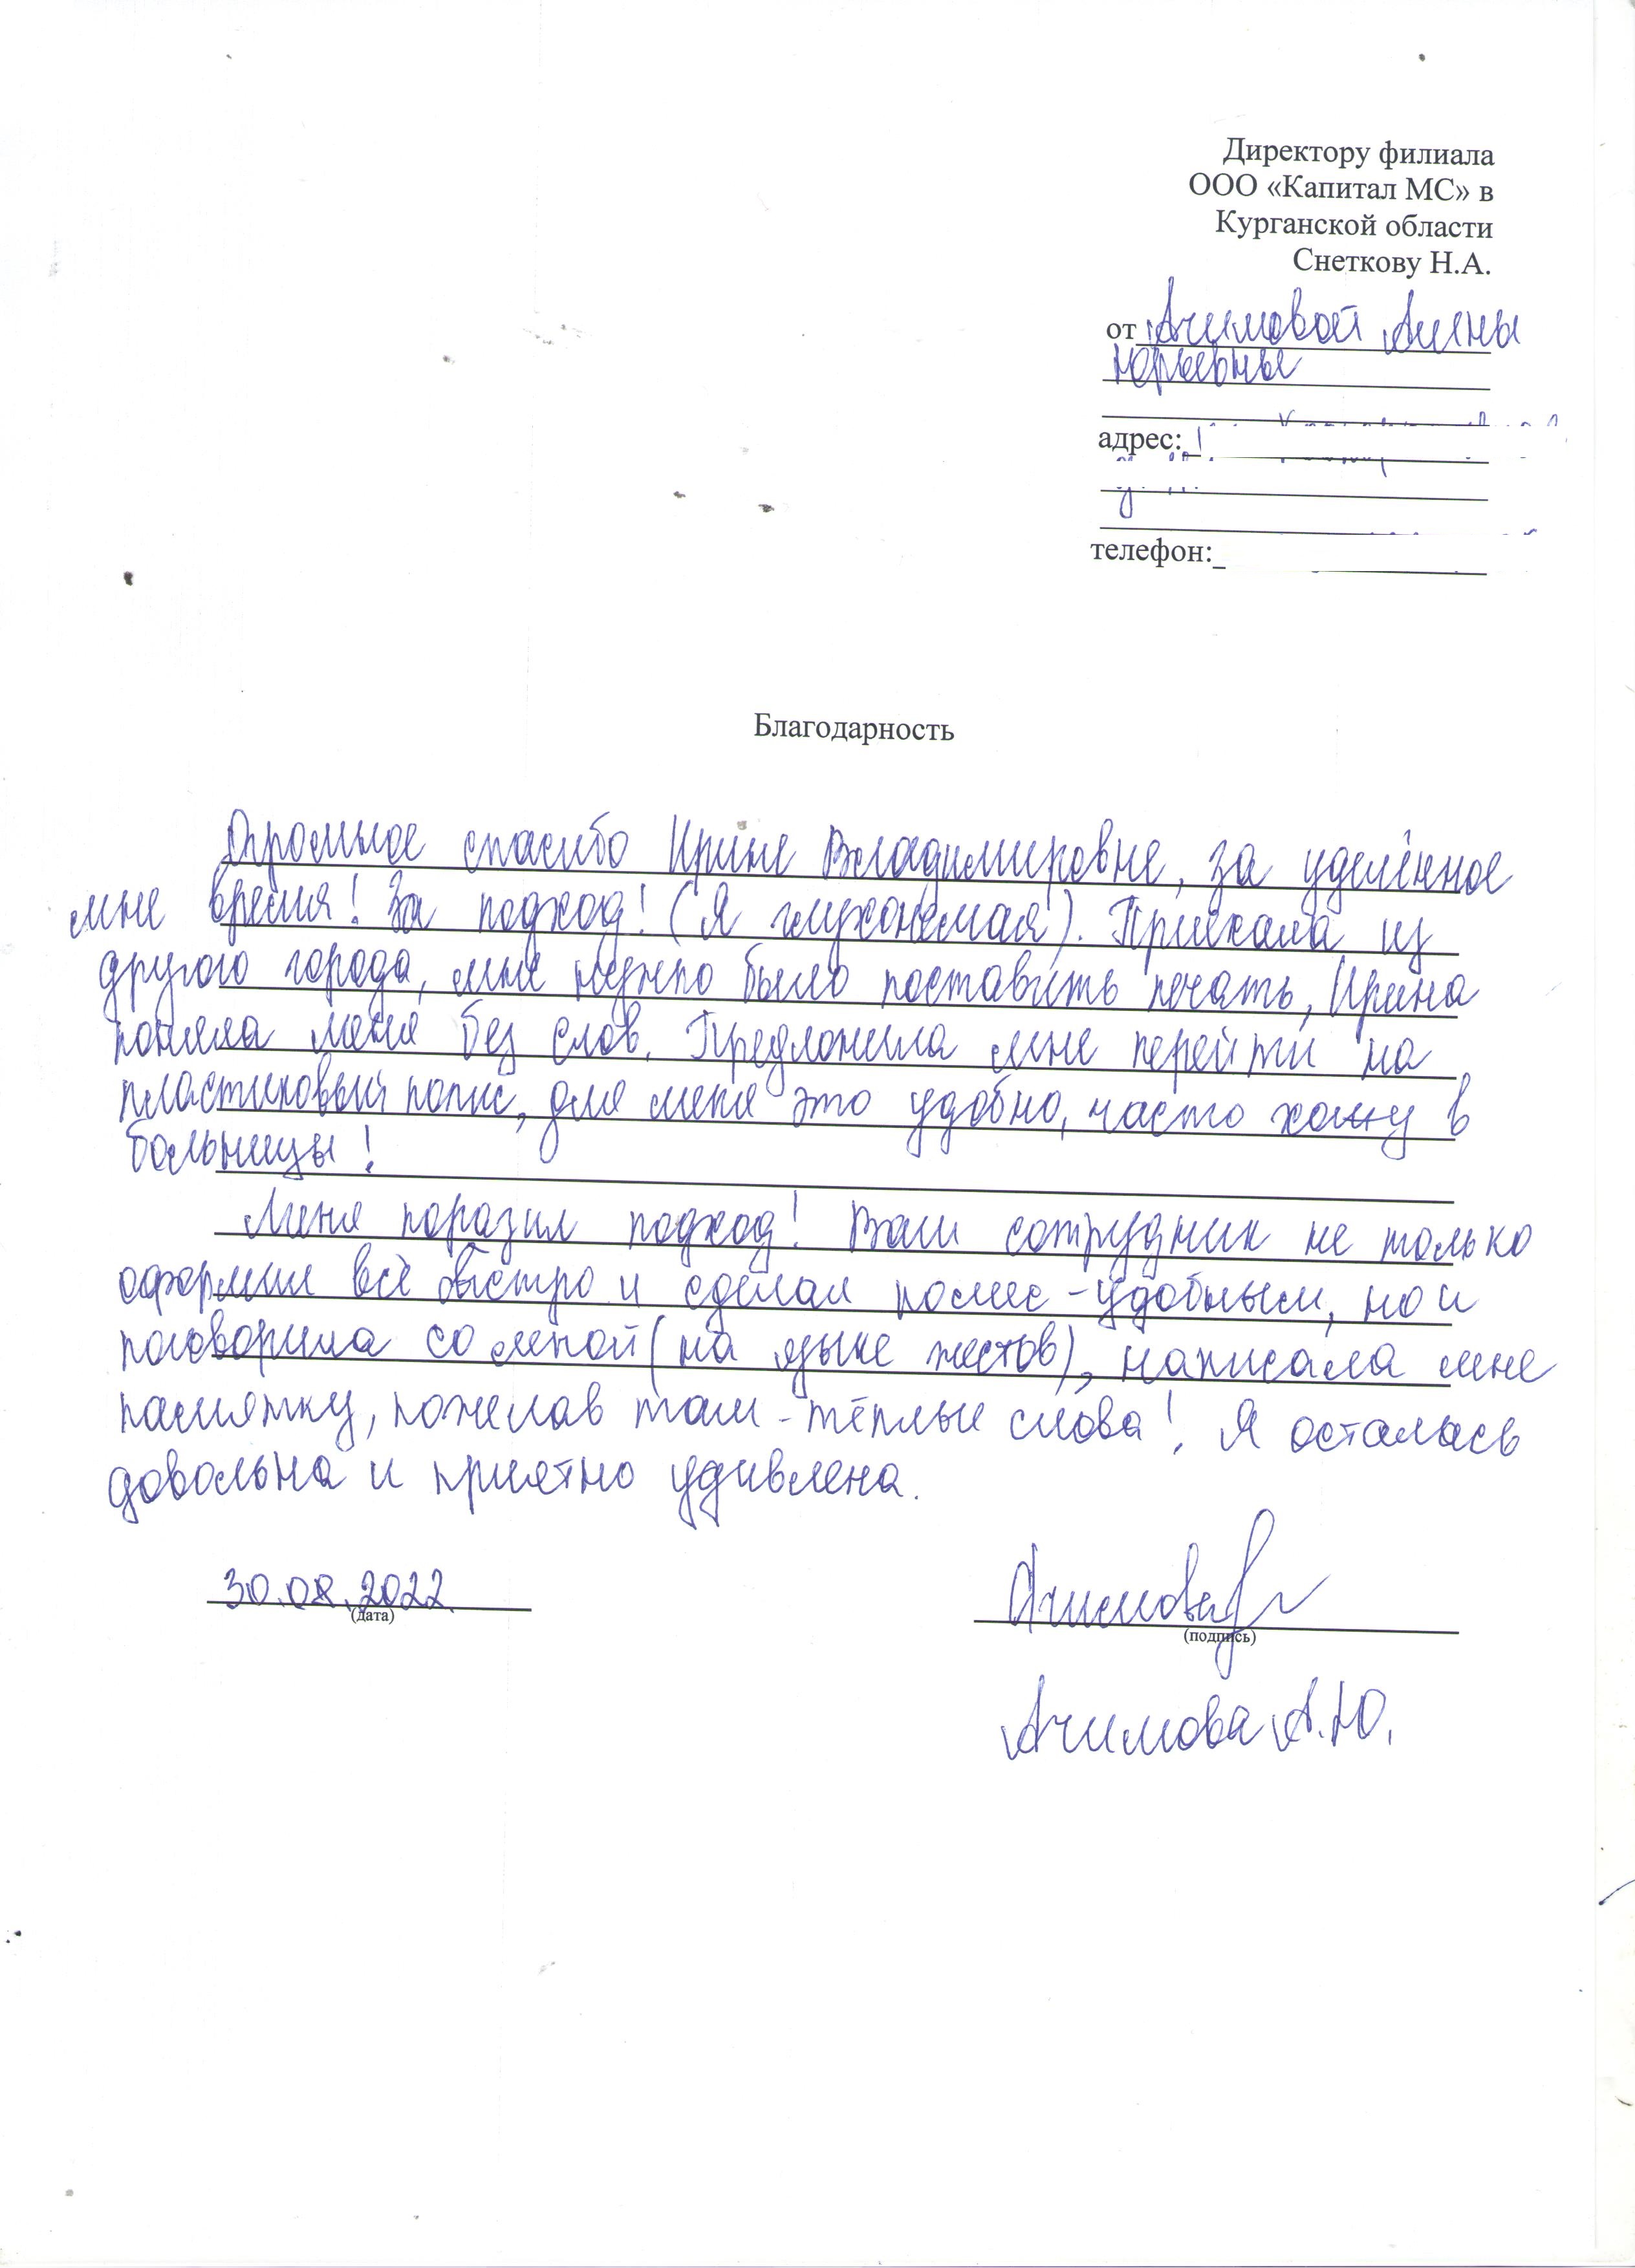 Директору филиала
ООО «Капитал МС» в
Курганской области
Снеткову Н.А.
от Ачимовой Алины
Юрьевны
адрес:
телефон:
Благодарность
Огромное спасибо Ирине Владимировне, за уделённое
мне время! За подход! (Я глухонемая). Приехала из
другого города, мне нужно было поставить печать, Ирина
поняла меня без слов. Предложила мне перейти на
пластиковый полис, для меня это удобно, часто хожу в
больницы!
Меня поразил подход! Ваш сотрудник не только
оформил всё быстро и сделал полис - удобным, но и
поговорила со мной (на языке жестов), написала мне
памятку, пожелав там - тёплые слова! Я осталась
довольна и приятно удивлена.
30.08.2022
(дата)
Ачимова
(подпись)
Ачимова А.Ю.